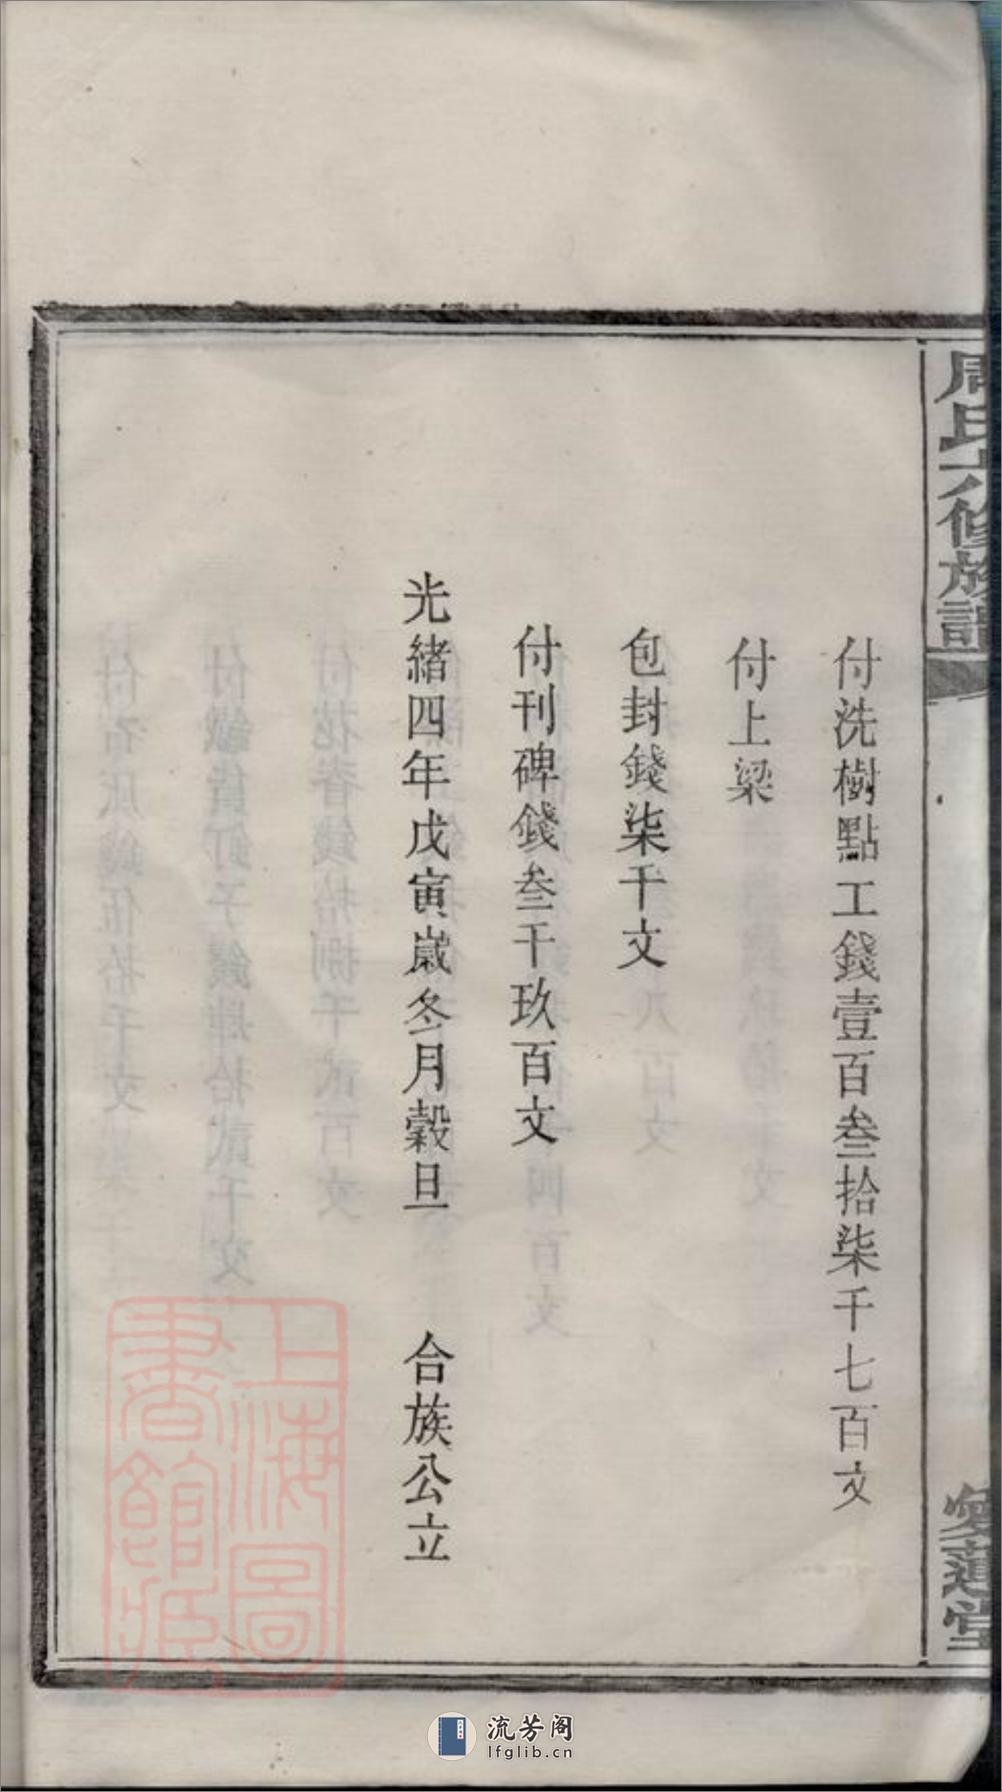 周氏六修族譜
愛蓮堂
付洗樹點工錢壹百叁拾柒千七百文
付上梁
包封錢柒千文
付刊碑錢叁千玖百文
光緒四年戊寅歲冬月穀旦　合族公立
上海圖
書館藏
流芳阁
lfglib.cn